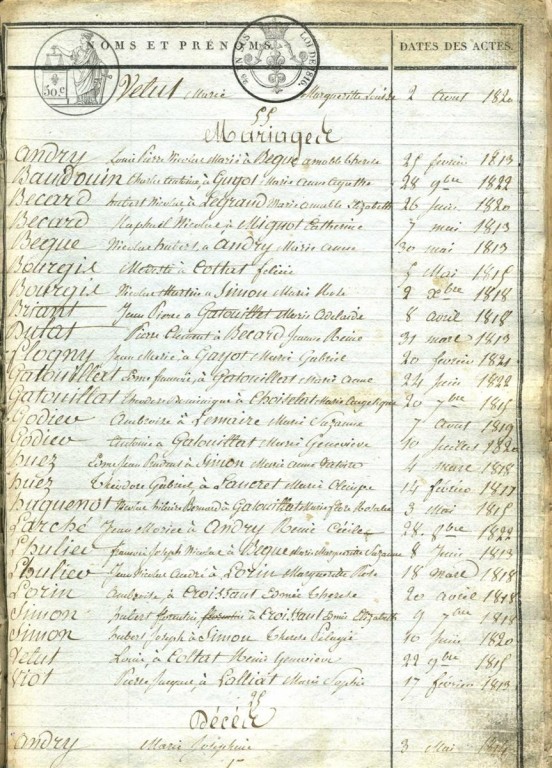 NOMS ET PRÉNOMS. DATES DES ACTES.
50 c.
Velut Marie Marguerite 2 Aout 1820
Mariages
Andry Louis Pierre Nicolas Marie à Beque amable therese 25 février 1813
Baudouin Charles à Guyot Marie Anne Agathe 28 9bre 1822
Becard hubert Nicolas à Legrand Marie amable Elizabeth 26 Juin 1820
Becard Raphael Nicolas à Mignot Catherine 7 mai 1813
Beque Nicolas hubert à Andry Marie anne 30 mai 1813
Bourgis à Cottat felicie 5 Mai 1815
Bourgis Nicolas Martin à Simon Marie Rose 2 xbre 1818
Briant Jean Pierre à Gatouillat Marie Adelaide 8 avril 1815
Dutat Pierre Clement à Becard Jeanne Reine 31 mars 1813
flogny Jean Marie à Gayot Marie Gabriel 20 février 1821
Gatouillat Edme à Gatouillat Marie anne 24 Juin 1822
Gatouillat Theodore Dominique à Choiselat Marie Angelique 20 7bre 1815
Godiev Ambroise à Lemaire Marie Suzanne 7 avril 1819
Godiev Antoine à Gatouillat Marie Geneviève 10 Juillet 1820
huez Edme Jean à Simon Marie anne 4 mars 1818
huez Théodore Gabriel à Fauvret Marie Olimpe 14 février 1817
huguenot Bernard à Gatouillat Marie flore 3 Mai 1815
Larché Jean Marie à Andry Reine Cécile 28 8bre 1822
L'huilier francois Joseph Nicolas à Beque Marie Marguerite Suzanne 8 Juin 1813
L'huilier Jean Nicolas André à Lorin Marguerite Rose 18 mars 1818
Lorin Ambroise à Croissant Edmée Therese 20 avril 1818
Simon hubert florentin à Croissant Edmée Elizabeth 9 7bre 1818
Simon hubert Joseph à Simon Therese Pelagie 10 Juin 1820
Velut Louis à Cottat Reine Genevieve 22 9bre 1815
Viot Pierre Jacques à Lalliat Marie Sophie 17 février 1813
Décès
Andry Marie Joséphine 3 Mai